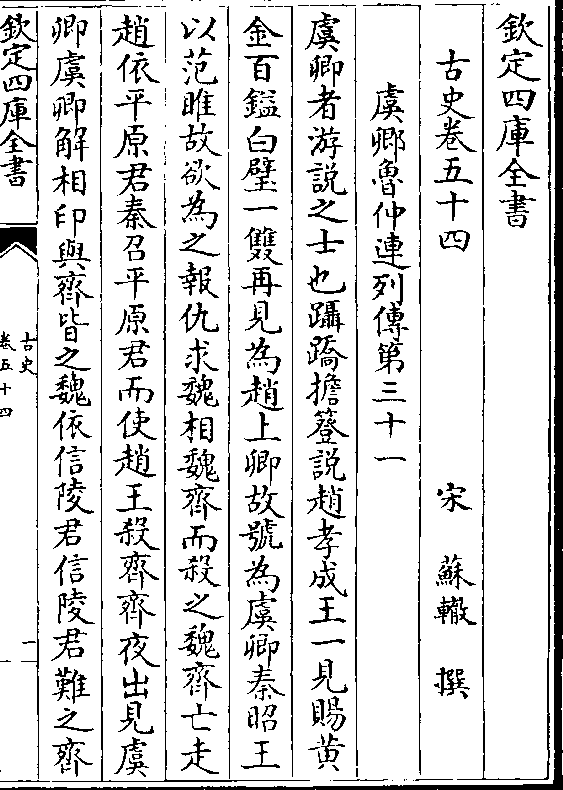 欽定四庫全書
古史卷五十四
宋 蘇轍 撰
虞卿魯仲連列傳第三十一
虞卿者游說之士也躡蹻擔簦說趙孝成王一見賜黃
金百鎰白璧一雙再見為趙上卿故號為虞卿秦昭王
以范睢故欲為之報仇求魏相魏齊而殺之魏齊亡走
趙依平原君秦召平原君而使趙王殺齊齊夜出見虞
卿虞卿解相印與齊皆之魏依信陵君信陵君難之齊
欽定四庫全書
古史
卷五十四
一